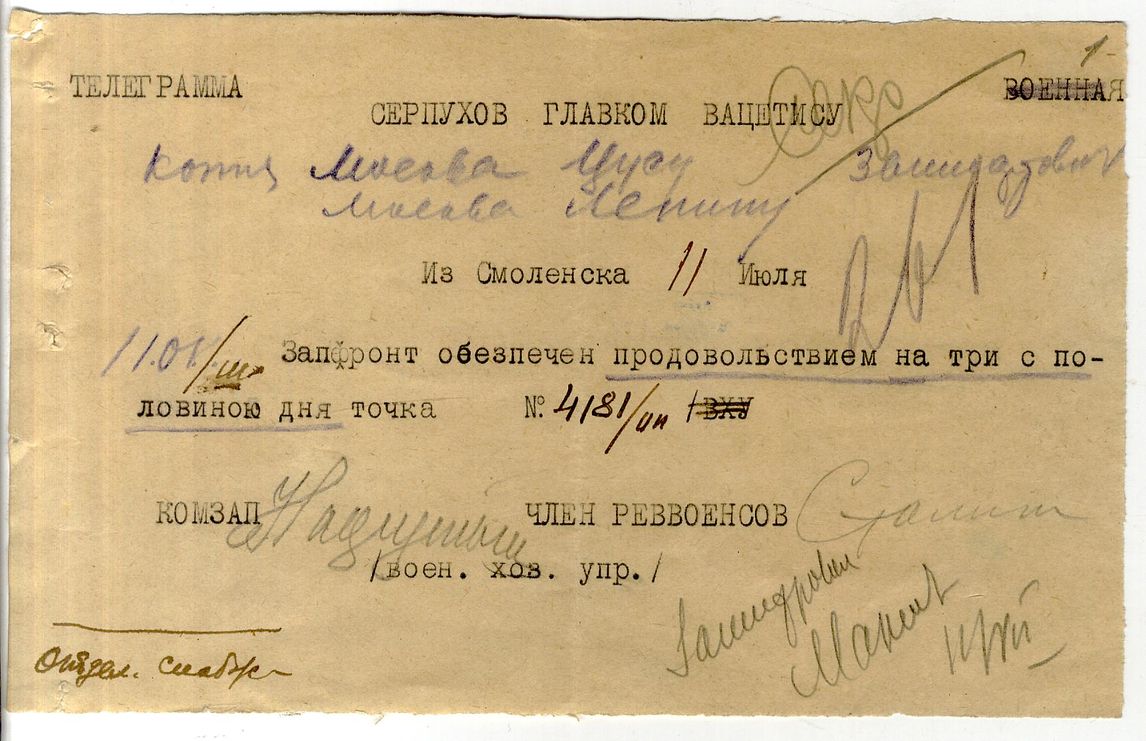 1
ТЕЛЕГРАММА ВОЕННАЯ
СЕРПУХОВ ГЛАВКОМ ВАЦЕТИСУ
копия Москва Цусу
Москва Ленину
Из Смоленска 11 Июля
Запфронт обезпечен продовольствием на три с по-
ловиною дня точка № 4181/ип /ВХУ
КОМЗАП Надежный ЧЛЕН РЕВВОЕНСОВ Сталин
/воен. хоз. упр./
Отдел. снабж